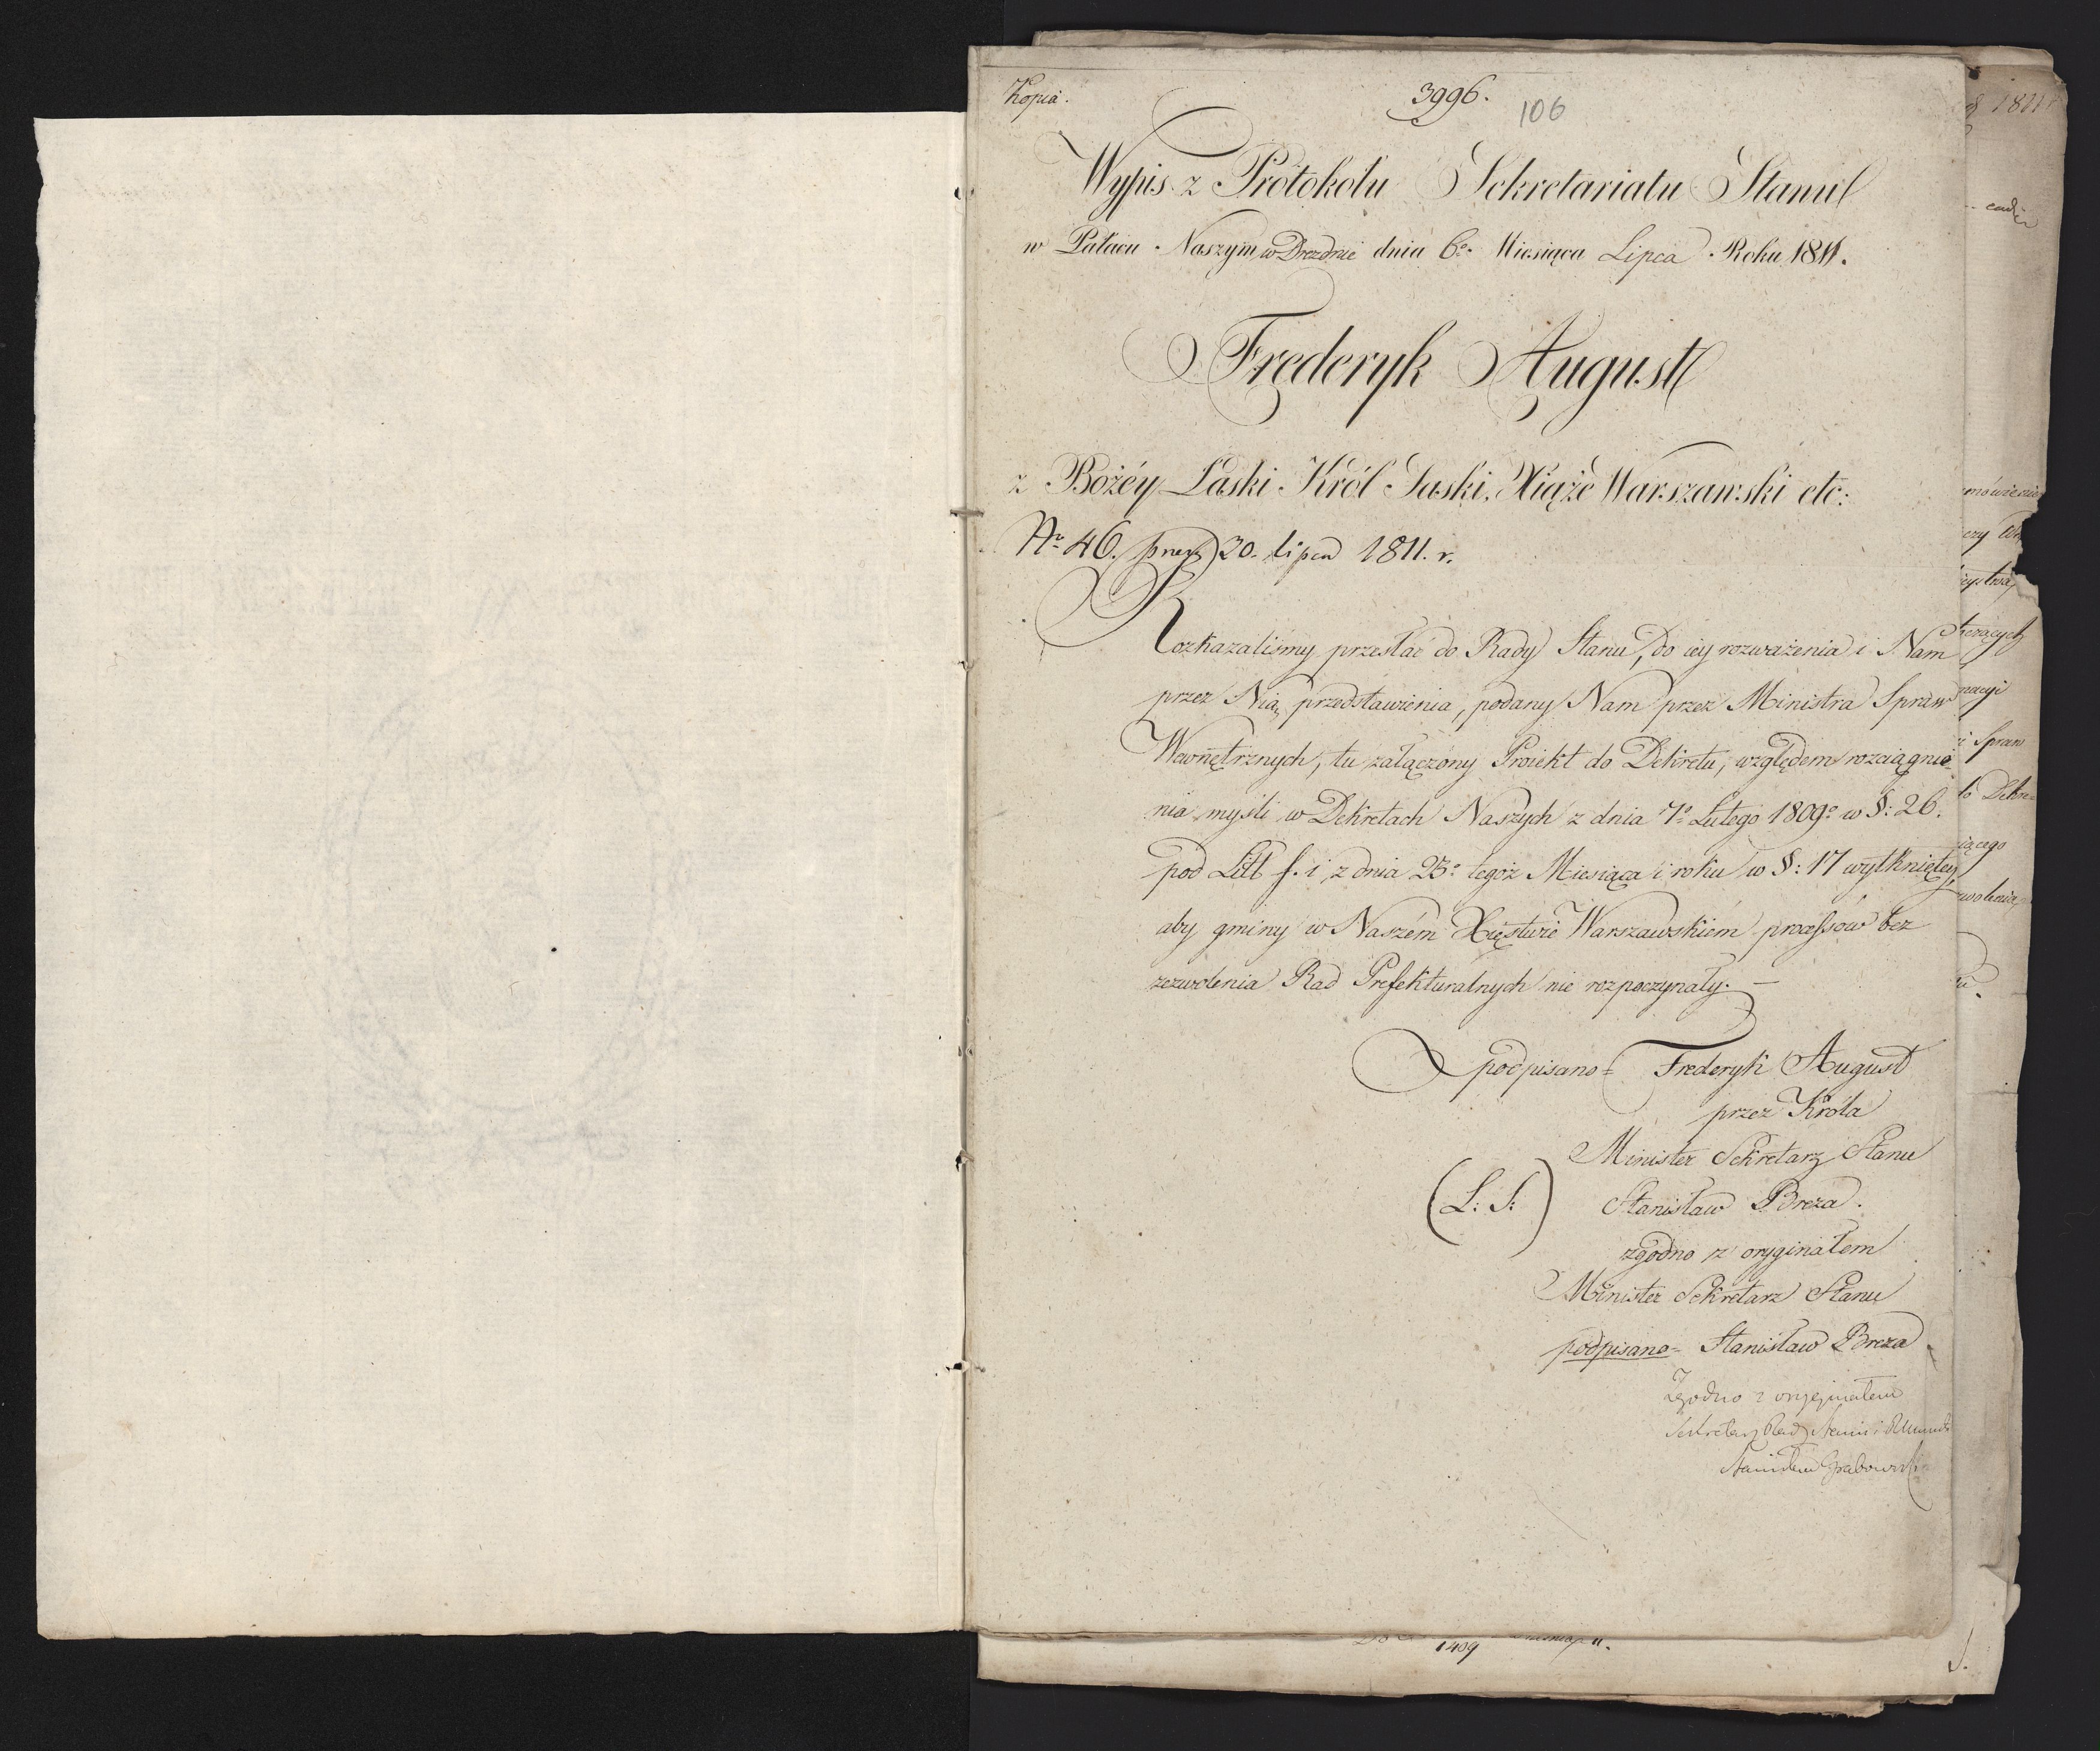 Kopia.
3996.
106
Wypis z Protokołu Sekretariatu Stanu
w Pałacu Naszym w Dreznie dnia 6º Miesiąca Lipca Roku 1811.
Frederyk August
z Bożéy Łaski Król Saski, Xiąże Warszawski etc:
Nr 46. prez 20. lipca 1811. r.
Rozkazaliśmy przesłać do Rady Stanu, do iey rozważenia i Nam
przez Nią przedstawienia, podany Nam przez Ministra Spraw
Wewnętrznych, tu załączony Proiekt do Dekretu, względem rozciągnie-
nia myśli w Dekretach Naszych z dnia 7º Lutego 1809º w §: 26.
pod Litt f. i z dnia 25º tegoż Miesiąca i roku w §: 17 wytkniętey,
aby gminy w Naszém Xięstwie Warszawskiém processów bez
zezwolenia Rad Prefekturalnych nie rozpoczynały. —
podpisano = Frederyk August
przez Króla
Minister Sekretarz Stanu
(L: S:) Stanisław Breza.
zgodno z oryginałem
Minister Sekretarz Stanu
podpisano = Stanisław Breza
Zgodno z oryginałem
Sekretarz Rady Stanu i
Stanisław Grabowski
1811
mówienie
czy
nacyi
i Spraw
to Dekre-
iącego
zwolenia
1409